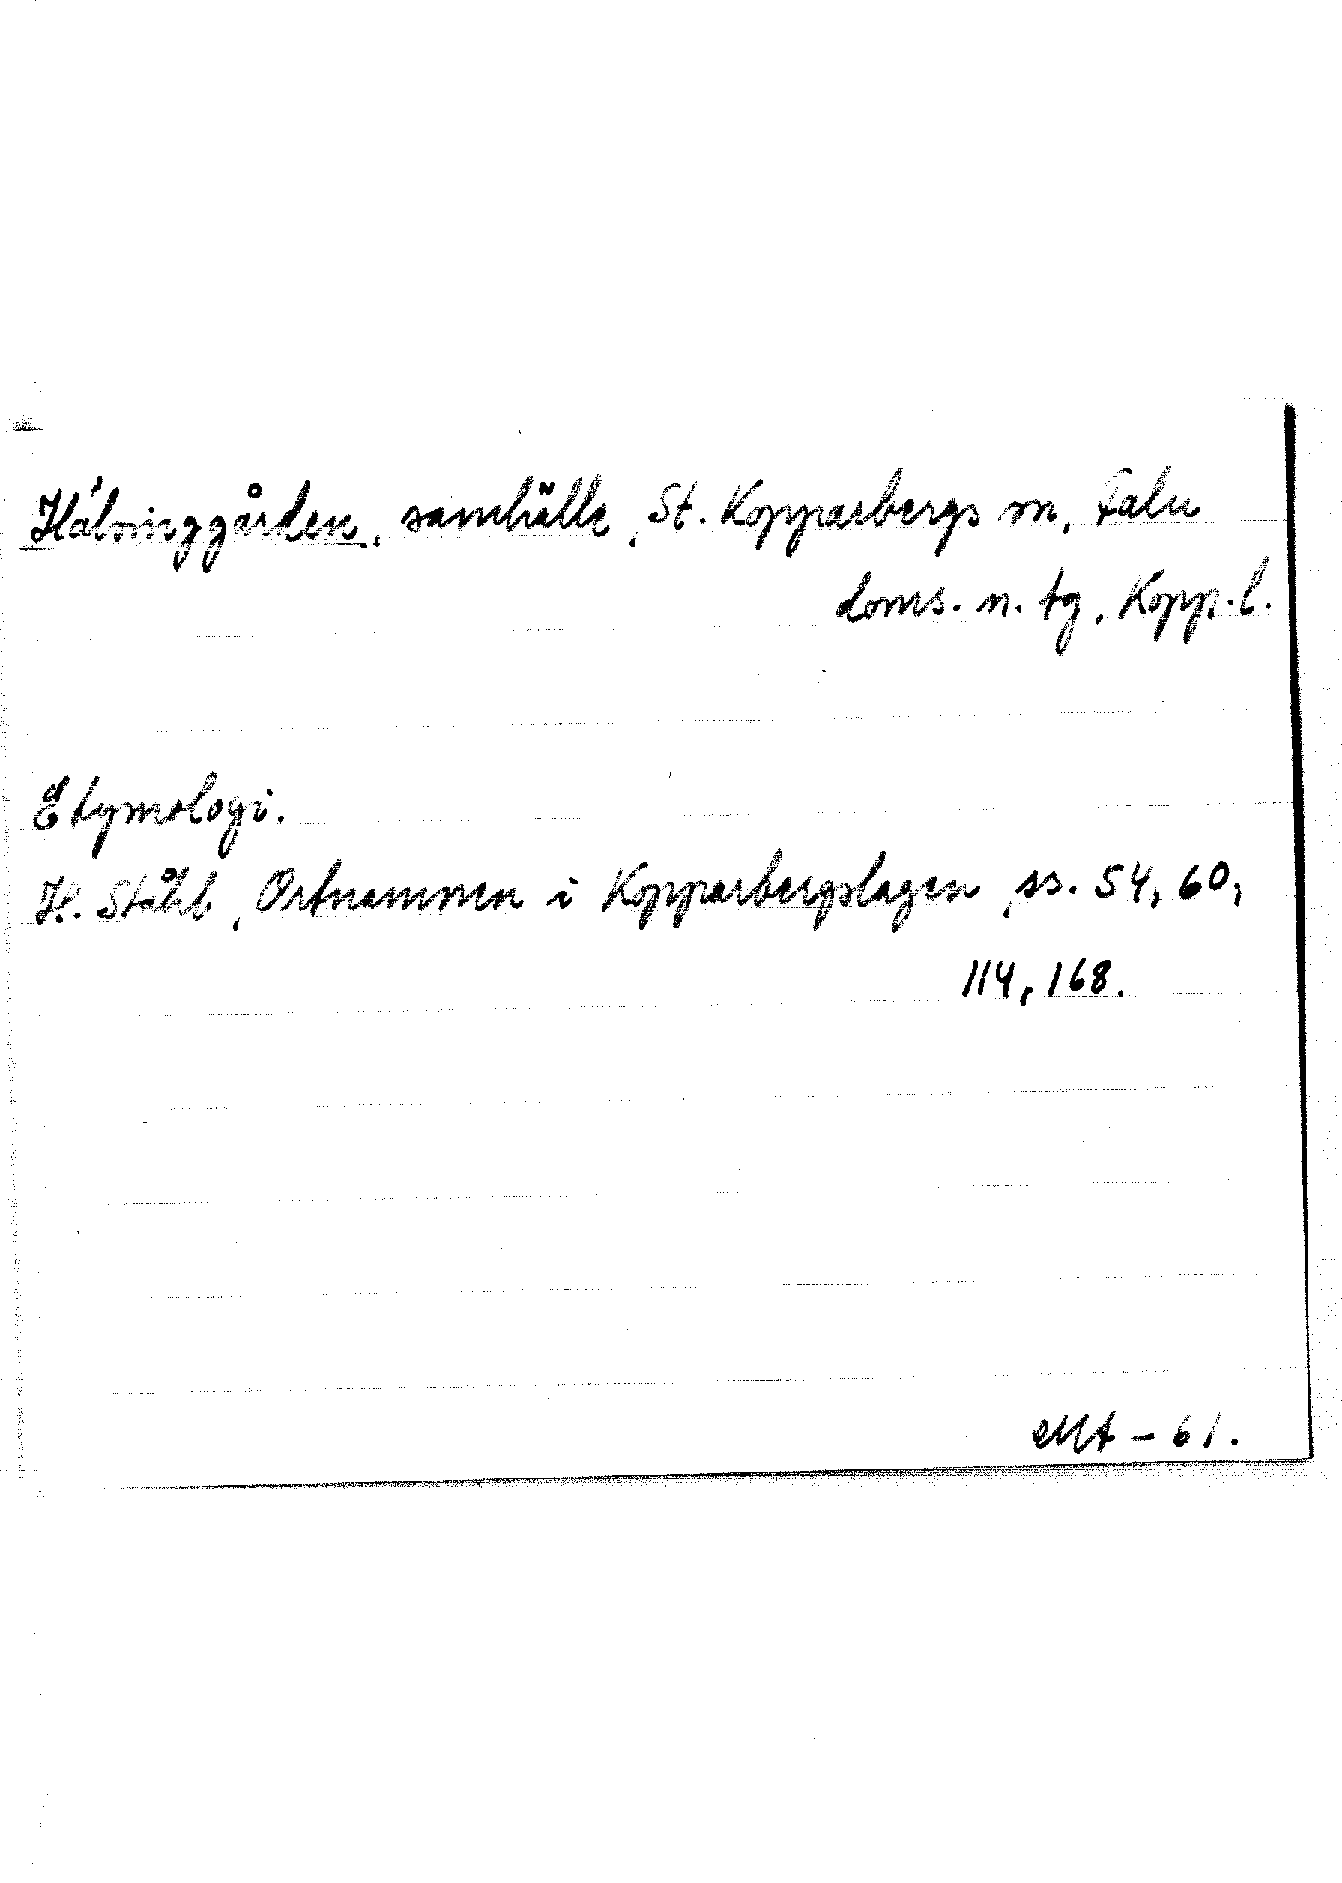 Hälsinggården, samhälle, St. Kopparbergs sn, Falu
doms. n. tg, Kopp. l.
Etymologi.
H. Ståhl, Ortnamnen i Kopparbergslagen, ss. 54, 60,
114, 168.
MA – 61.